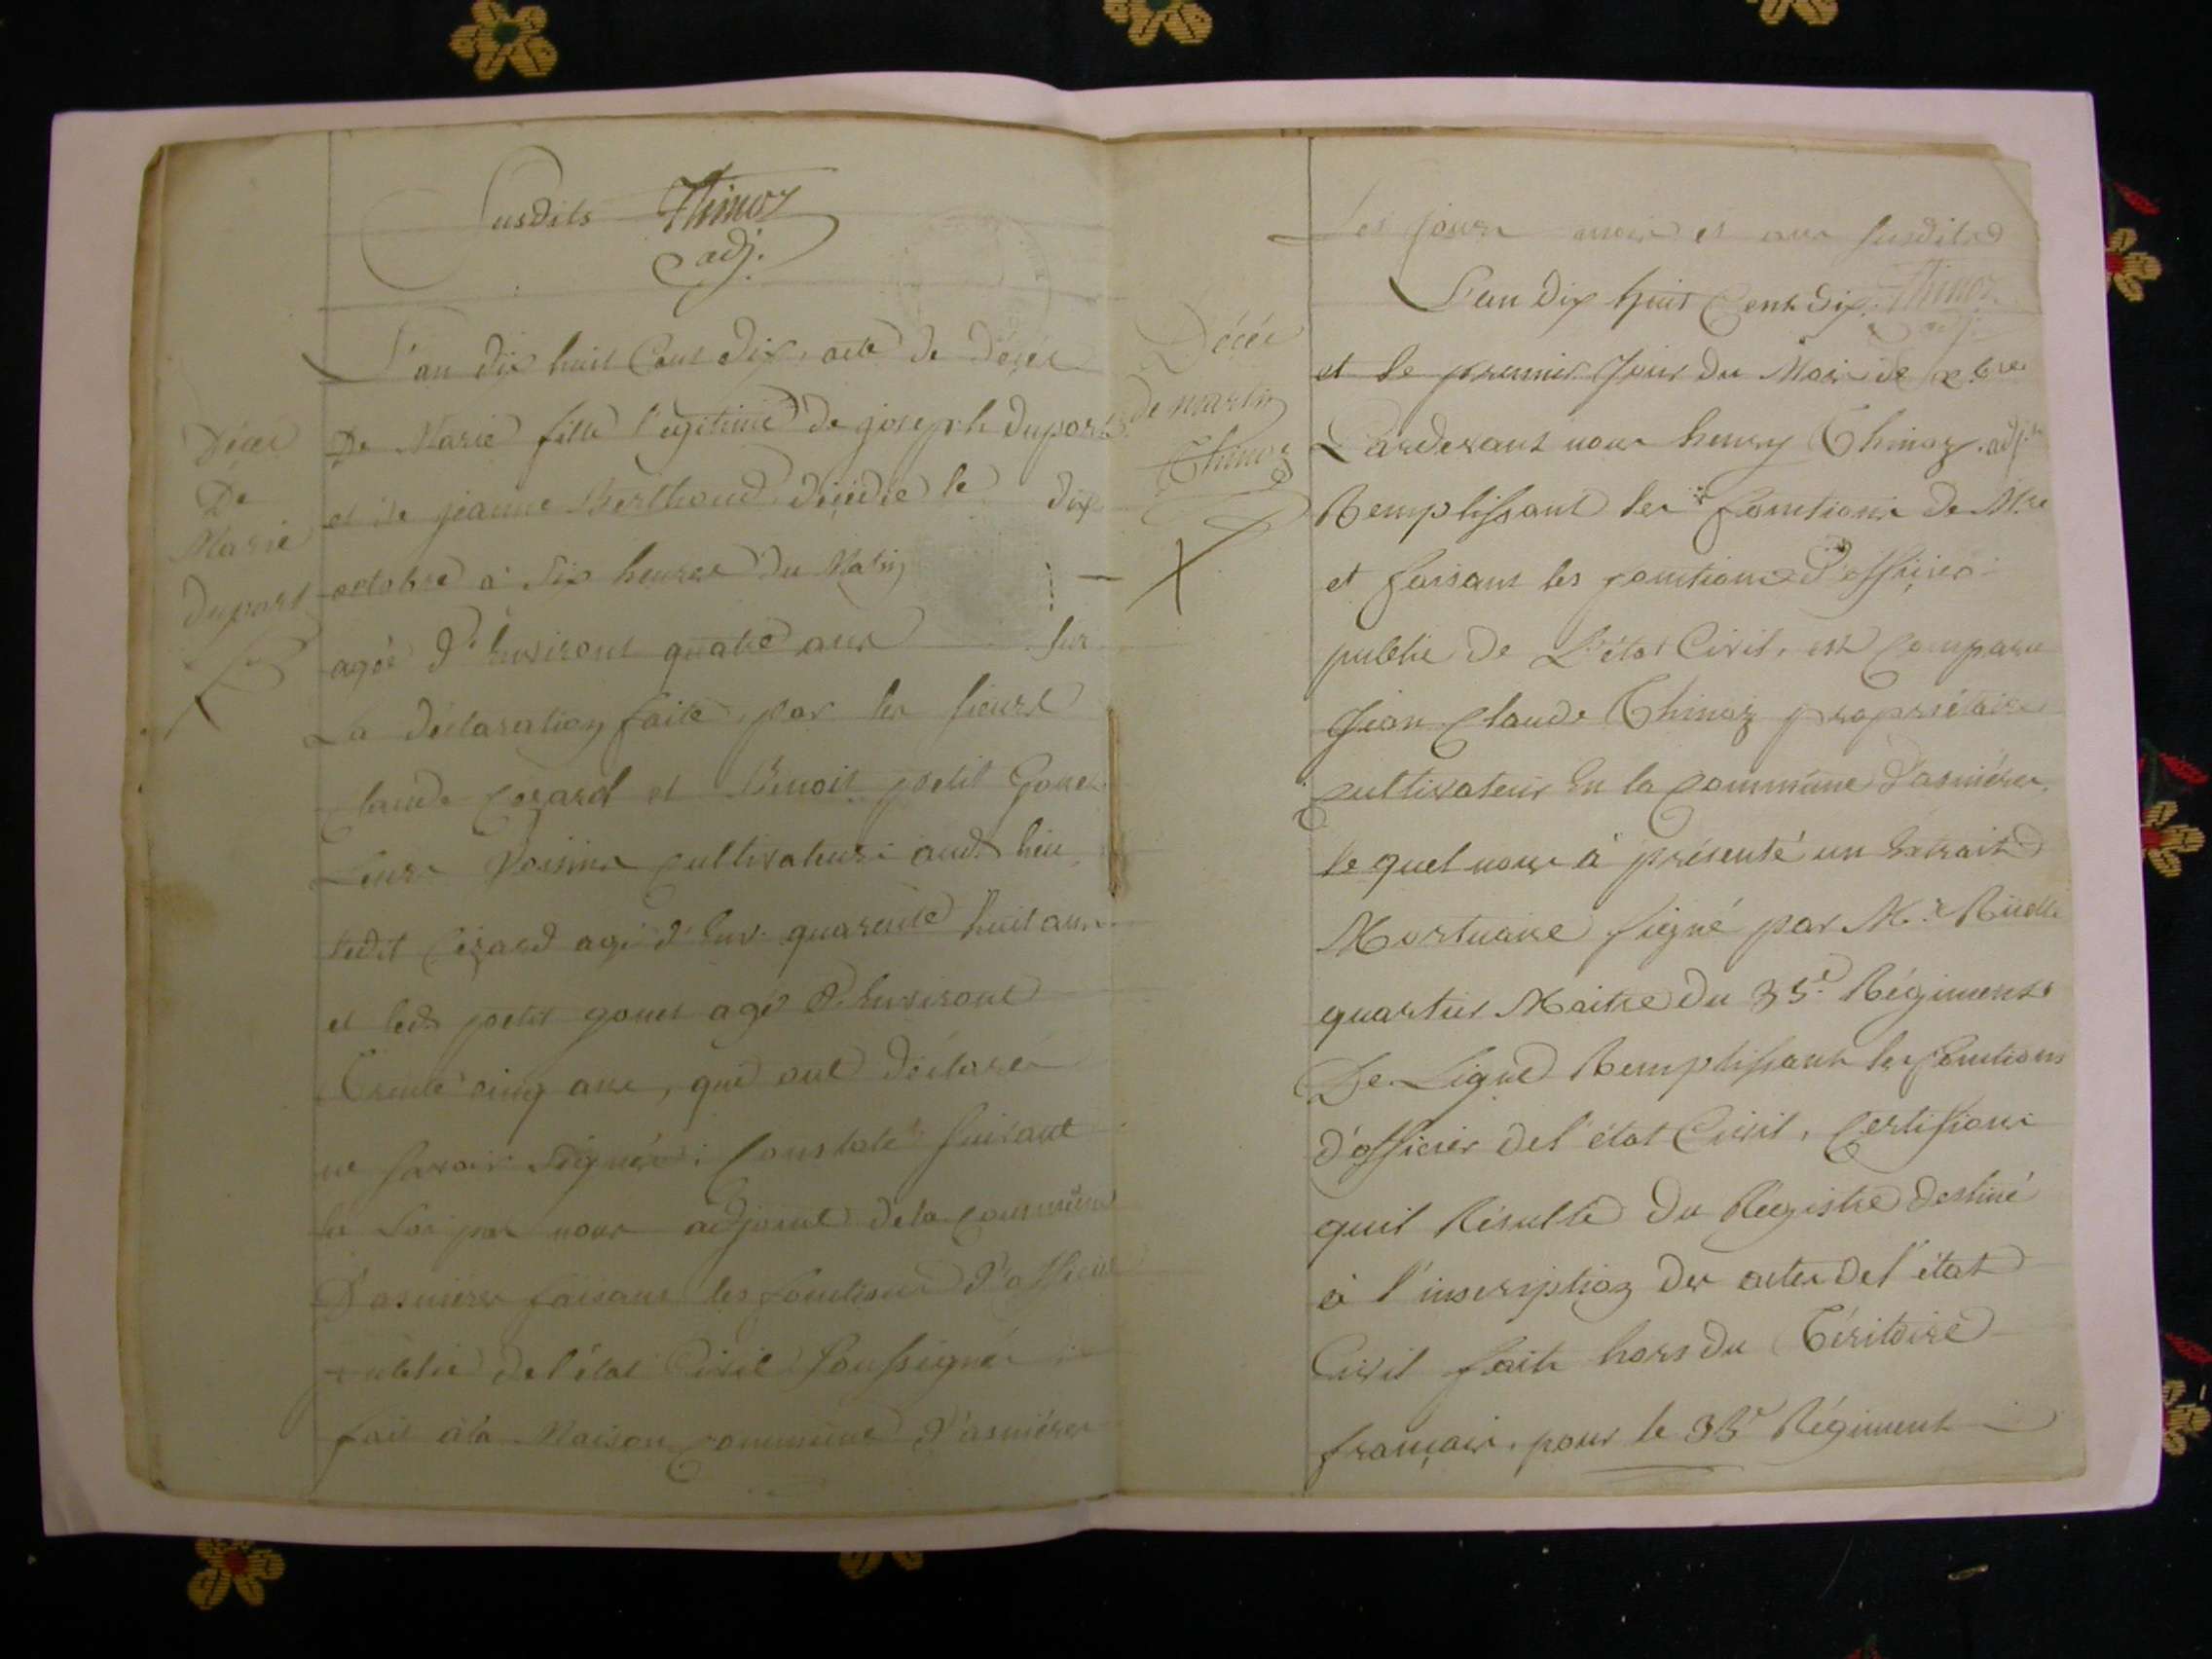 Susdits Thinoz
adj.
L'an dix huit Cent dix, acte de décés
Décés
De
Marie
duport
De Marie fille l'egitime de joseph duport
et de jeanne Berthoud décédée le dix
octobre à Six heures du Matin
agée d'Environt quatre ans sur
La déclaration faite par les sieurs
Claude Cozard et Benoit petit Gonet
Leurs Voisins Cultivateurs aud. lieu
ledit Cozard agé d'Env. quarente huit ans
et led. petit gonet agé d'Environt
Trente cinq ans, qui ont déclarés
ne savoir Signer. Constaté suivant
la Loi par nous adjoint de la Commune
D'asnieres faisant les fonctions d'officier
public de l'état Civil Soussigné
fait à la Maison commune d'asnières
Les jours mois et ans susdits
Thinoz
adj.
Décés
de martin
Thinoz
L'an dix huit Cent dix
et le premier Jour du Mois de
Pardevant nous henry Thinoz adj.
Remplissant les fonctions de Mre
et faisant les fonctions d'officier
public de L'état Civil, est Comparu
Jean Claude Thinoz propriétaire
Cultivateur En la Commune d'asnières
le quel nous à présenté un Extrait
Mortuaire signé par Mr
quartier Maitre du 35e Régiment
De Ligne Remplissant les fonctions
d'officier de l'état Civil, Certifions
quil Résulte du Régistre destiné
à l'inscription des actes de l'état
Civil faits hors du Téritoire
français. pour le 35e Régiment